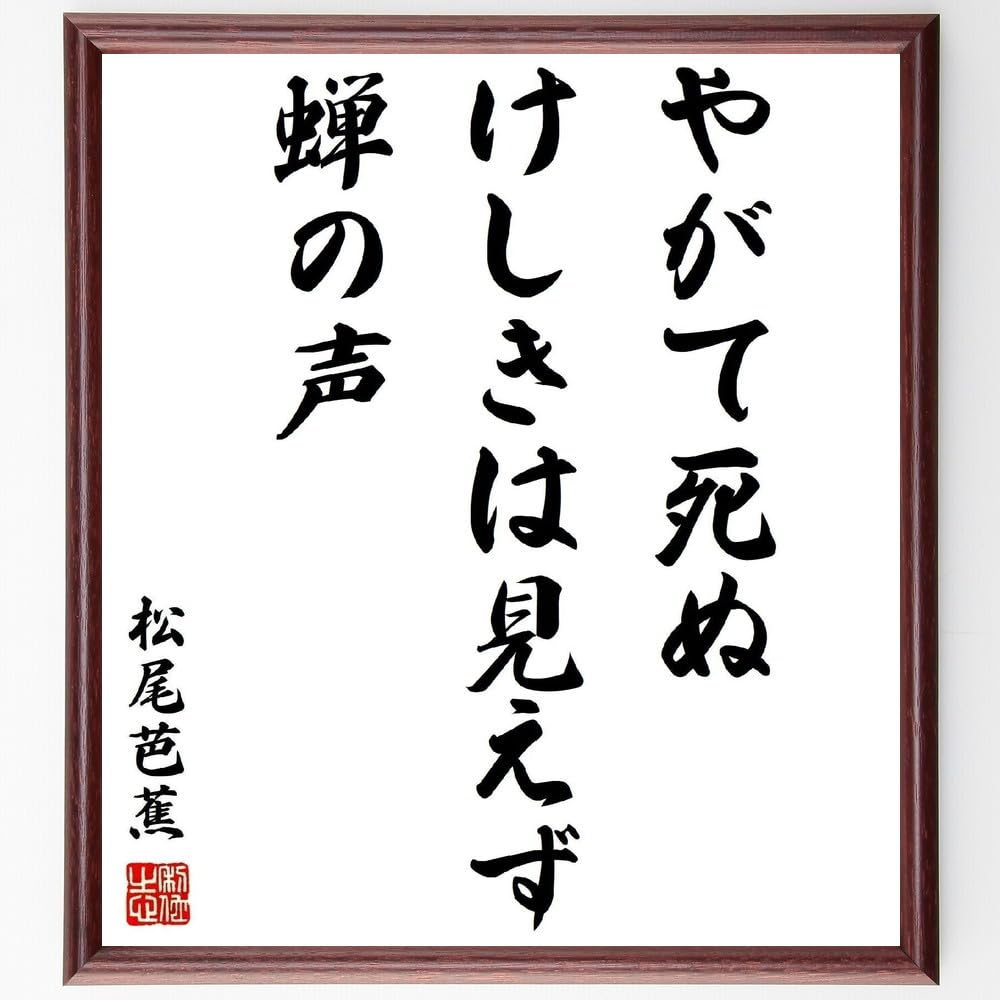 やがて死ぬ
けしきは見えず
蝉の声
松尾芭蕉